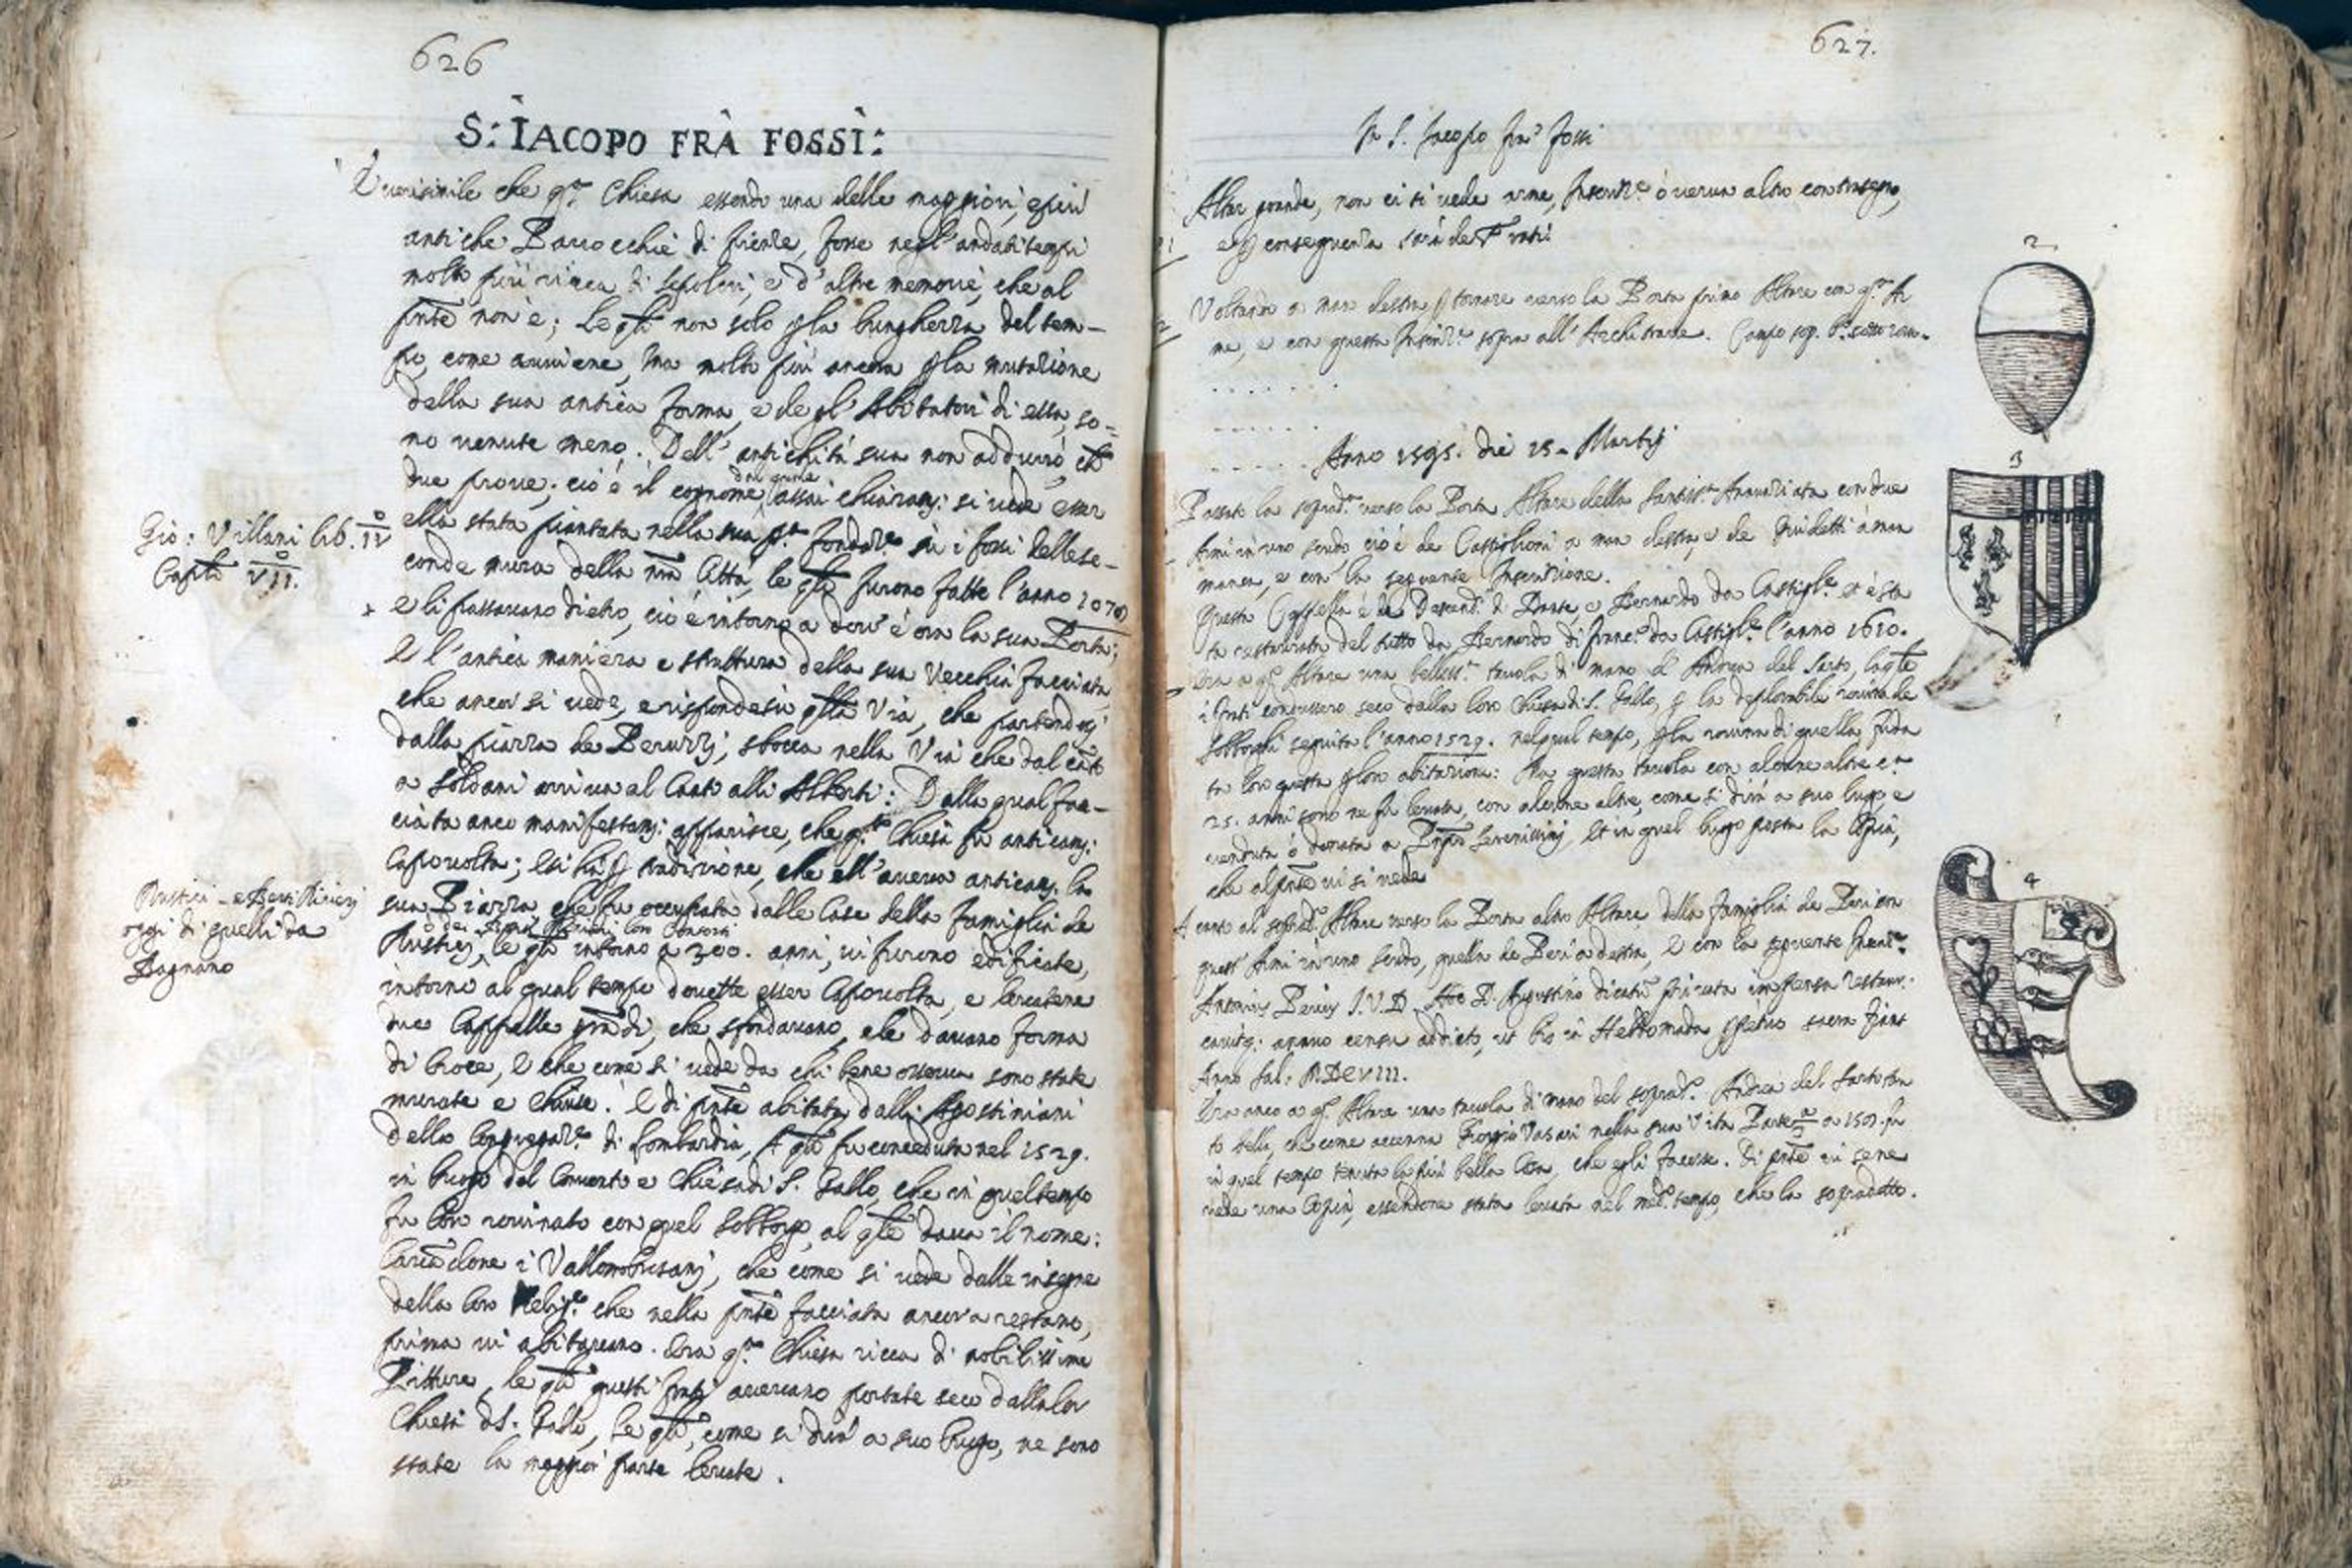 626
S: IACOPO FRÀ FOSSI:
È verisimile che q.ta Chiesa essendo una delle maggiori, e più
antiche Parrocchie di Firenze, fosse negl' andati tempi
molto più ricca di sepolcri, e d'altre memorie, che al
pnte non è; le qli non solo p la lunghezza del tem-
po, come avviene, ma molto più ancora p la mutazione
della sua antica forma, e de gl' Abitatori di essa, so-
no venute meno. Dell' antichità sua non addurrò, che
due prove; ciò è il cognome, assai chiaram: si vede esser
ella stata piantata nella sua p.a fondaz.e sù i fossi delle se-
conde mura della nra Città, le qli furono fatte l'anno 1078
e li passavano dietro, ciò è intorno a dov' è ora la sua Porta;
E l'antica maniera e struttura della sua Vecchia facciata
che ancor si vede, e risponde in qlla Via, che partendosi
dalla piazza de Peruzzi, sbocca nella Via che dal cāto
a Soldani arriva al Canto alli Alberti: Dalla qual fac-
ciata anco manifestam: apparisce, che q.ta Chiesa fu anticam:
Caporvolta; e si hà p tradizione, che ell' aveva anticam. la
sua Piazza che fu occupata dalle Case della famiglia de
Rustici, le qli intorno a 300. anni, vi furono edificate,
intorno al qual tempo dovette esser Caporvolta, e levatene
due Cappelle grādi, che sfondavano, e le davano forma
di Croce, e che come si vede da chi bene osserva sono state
murate e chiuse. È di pnte abitata dalli Agostiniani
della Congregaz.e di Lombardia, A qli fu conceduta nel 1529.
in luogo del Convento e Chiesa di S. Gallo, che in quel tempo
fu loro rovinato con quel Sobborgo, al qle dava il nome:
i Vallombrosani, che come si vede dalle insegne
della loro Relig.e che nella pnte facciata ancora restano,
prima vi abitavano. Era q.ta Chiesa ricca di nobilissime
Pitture, le qli questi frati avevano portate seco dalla lor
Chiesa di S. Gallo, le qli, come si dirà a suo luogo, ne sono
state la maggior parte levate.
Gio: Villani lib. IV
Cap.lo VII.
Rustici
oggi di quelli da
Bagnano
627.
In S. Iacopo fra' Fossi
Altar grande, non ci si vede arme, Inscriz.e o verun altro contrasegno,
e p conseguenza sarà de Frati
Voltando a man destra p tornare verso la Porta primo Altare con q.ta Ar
me, e con questa Inscriz.e sopra all' Architrave. Campo sop.
Anno 1595. die 15. Martij
Passato la soprad.a verso la Porta Altare della Santiss.a Annunziata con due
Armi in uno scudo ciò è de Castiglioni a man destra, e de Guidetti à man
manca, e con la seguente Inscrizione.
Questa Cappella è de Descend.i di Dante, e Bernardo da Castigl.e et è sta
ta restaurata del tutto da Bernardo di Franc.o da Castigl.e l'anno 1610.
Era a q.o Altare una belliss.a tavola di mano di Andrea del Sarto, la qle
i frati condussero seco dalla loro Chiesa di S. Gallo, p la deplorabile rovina de
Sobborghi seguita l'anno 1529. nel qual tempo, p la rovina di quella, fu da
ta loro questa p loro abitazione: Ma questa tavola con alcune altre
25. anni sono ne fu levata, con alcune altre, come si dirà a suo luogo, e
venduta o donata a Serenissimi, et in quel luogo posta la Copia,
che al pnte vi si vede
Accanto al soprad.o Altare verso la Porta altro Altare della famiglia de Peri con
quest' Armi in uno scudo, quella de Peri a destra, e con la seguente Inscriz.e
Antonius Perius I.V.D. Hoc D. Augustino dicatu privata impensa restaur.
cavitq: annuo censu addicto, ut bis in Hebdomada ppetuo sacra fiant
Anno Sal: MDCVIII.
Era anco a q.o Altare una tavola di mano del soprad.o Andrea del Sarto tan
to bella, che come accenna Giorgio Vasari nella sua Vita Parte 3 a 150. fu
in quel tempo tenuta la più bella Cosa, che egli facesse. Di pnte vi se ne
vede una Copia, essendone stata levata nel med.o tempo, che la sopradetta.
2
3
4